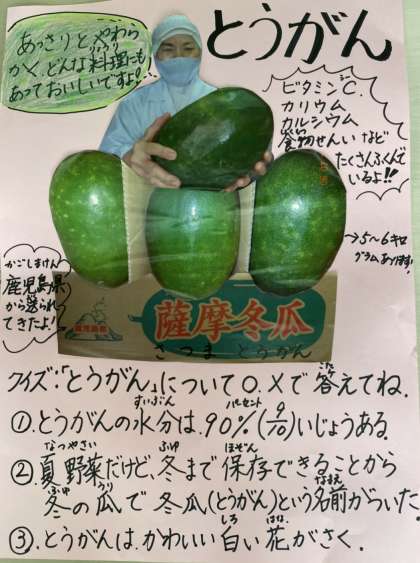 とうがん
あっさりとやわら
かく、どんな料理にも
りょうり
あっておいしいですよ!
ビタミンC.
カリウム
カルシウム
しょく
食物せんいなど
たくさんふくんで
いるよ!!
→5〜6キロ
グラムあります
かごしまけん
鹿児島県
から送られ
てきたよ!
鹿児島県
薩摩冬瓜
さつまとうがん
クイズ:「とうがん」について○.×で答えてね。
こた
すいぶん パーセント
①.とうがんの水分は.90%(9/10)いじょうある.
なつやさい ふゆ ほぞん
②.夏野菜だけど、冬まで保存できることから
ふゆ うり なまえ
冬の瓜で冬瓜(とうがん)という名前がついた.
しろ はな
③.とうがんは.かわいい白い花がさく.